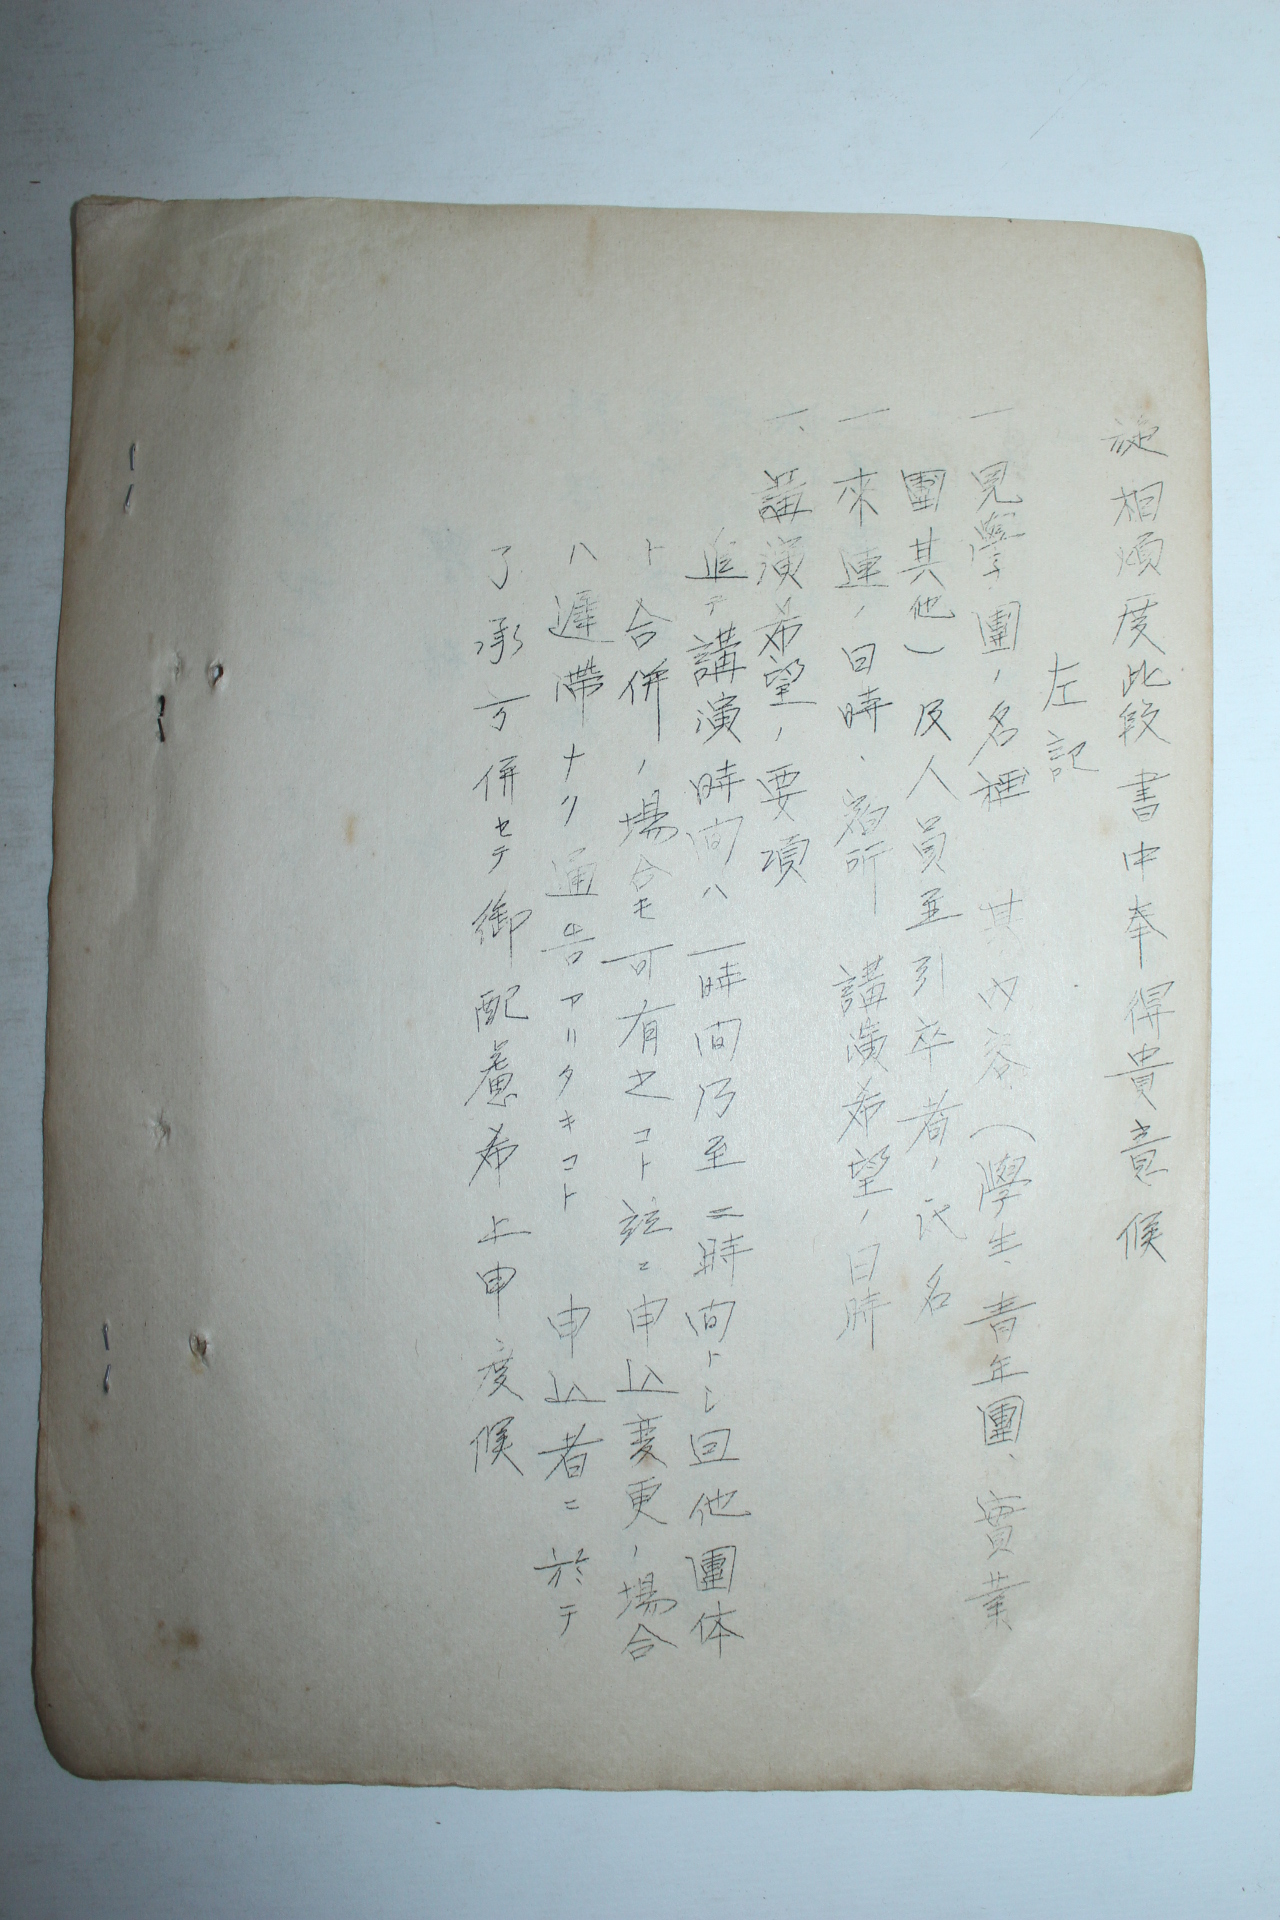 相煩度此段書中奉得貴意候
左記
一 見學團ノ名種 其内容(學生、青年團、實業
團其他)及人員並引卒者ノ氏名
一 來連ノ日時、宿所 講演希望ノ日時
一、講演希望ノ要項
追テ講演時間ハ一時間乃至二時間トシ回他團体
ト合併ノ場合モ可有之コト 竝ニ申込変更ノ場合
ハ遅滞ナク通告アリタキコト 申込者ニ於テ
了承方併セテ御配慮希上申度候